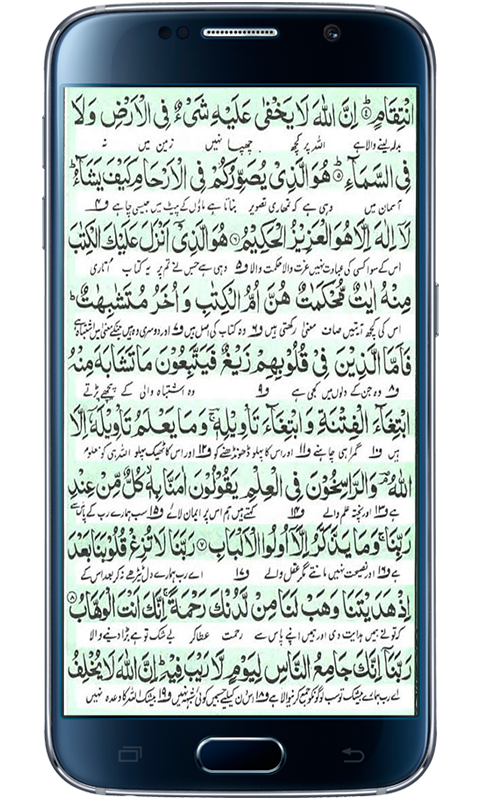 انْتِقَامٍ ﴿۴﴾ اِنَّ اللّٰهَ لَا يَخْفٰى عَلَيْهِ شَىْءٌ فِى الْاَرْضِ وَلَا
بدلہ لینے والا ہے اللہ پر کچھ چھپا نہیں زمین میں نہ
فِى السَّمَآءِ ﴿۵﴾ هُوَ الَّذِىْ يُصَوِّرُكُمْ فِى الْاَرْحَامِ كَيْفَ يَشَآءُ
آسمان میں وہی ہے کہ تمھاری تصویر بناتا ہے ماؤں کے پیٹ میں جیسی چاہے
لَآ اِلٰهَ اِلَّا هُوَ الْعَزِيْزُ الْحَكِيْمُ ﴿۶﴾ هُوَ الَّذِىْٓ اَنْزَلَ عَلَيْكَ الْكِتٰبَ
اس کے سوا کسی کی عبادت نہیں عزت والا حکمت والا وہی ہے جس نے تم پر یہ کتاب اتاری
مِنْهُ اٰيٰتٌ مُّحْكَمٰتٌ هُنَّ اُمُّ الْكِتٰبِ وَاُخَرُ مُتَشٰبِهٰتٌ
اس کی کچھ آیتیں صاف معنی رکھتی ہیں وہ کتاب کی اصل ہیں اور دوسری وہ ہیں جنکے معنی میں اشتباہ ہے
فَاَمَّا الَّذِيْنَ فِىْ قُلُوْبِهِمْ زَيْغٌ فَيَتَّبِعُوْنَ مَا تَشَابَهَ مِنْهُ
وہ جن کے دلوں میں کجی ہے وہ اشتباہ والی کے پیچھے پڑتے
ابْتِغَآءَ الْفِتْنَةِ وَابْتِغَآءَ تَاْوِيْلِهٖ وَمَا يَعْلَمُ تَاْوِيْلَهٗٓ اِلَّا
ہیں گمراہی چاہنے اور اس کا پہلو ڈھونڈھنے کو اور اس کا ٹھیک پہلو اللہ ہی کو معلوم
اللّٰهُ وَالرّٰسِخُوْنَ فِى الْعِلْمِ يَقُوْلُوْنَ اٰمَنَّا بِهٖ كُلٌّ مِّنْ عِنْدِ
ہے اور پختہ علم والے کہتے ہیں ہم اس پر ایمان لائے سب ہمارے رب کے پاس سے
رَبِّنَا وَمَا يَذَّكَّرُ اِلَّآ اُولُوا الْاَلْبَابِ ﴿۷﴾ رَبَّنَا لَا تُزِغْ قُلُوْبَنَا بَعْدَ
ہے اور نصیحت نہیں مانتے مگر عقل والے اے رب ہمارے دل ٹیڑھے نہ کر بعد اس کے
اِذْ هَدَيْتَنَا وَهَبْ لَنَا مِنْ لَّدُنْكَ رَحْمَةً اِنَّكَ اَنْتَ الْوَهَّابُ ﴿۸﴾
کہ تو نے ہمیں ہدایت دی اور ہمیں اپنے پاس سے رحمت عطا کر بے شک تو ہے بڑا دینے والا
رَبَّنَآ اِنَّكَ جَامِعُ النَّاسِ لِيَوْمٍ لَّا رَيْبَ فِيْهِ اِنَّ اللّٰهَ لَا يُخْلِفُ
اے رب ہمارے بیشک تو سب لوگوں کو جمع کرنے والا ہے اس دن کیلئے جس میں کوئی شبہ نہیں بیشک اللہ کا وعدہ نہیں